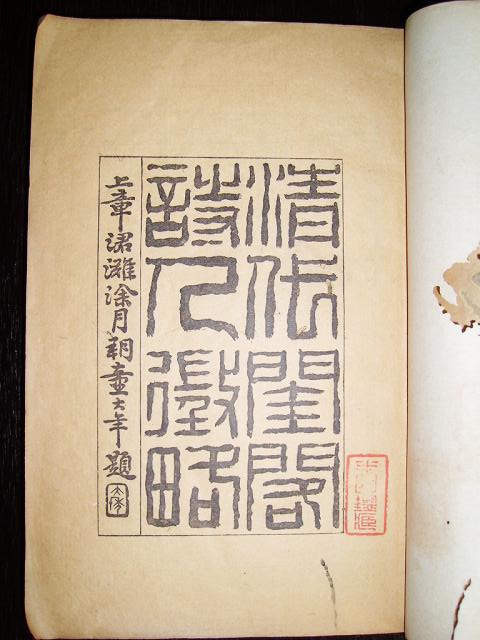 清代閨閣
詩人徵略
上章涒灘涂月朔童大年題